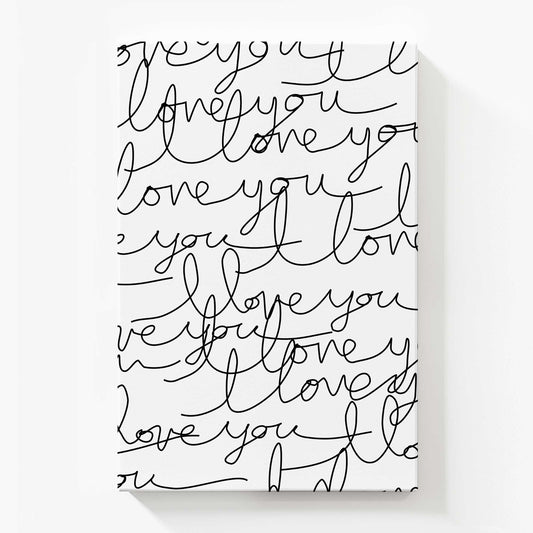 ove you I l
love you
I love you
love you I
e you I love
I love you
ve you I love y
I love y
love you I lo
ou